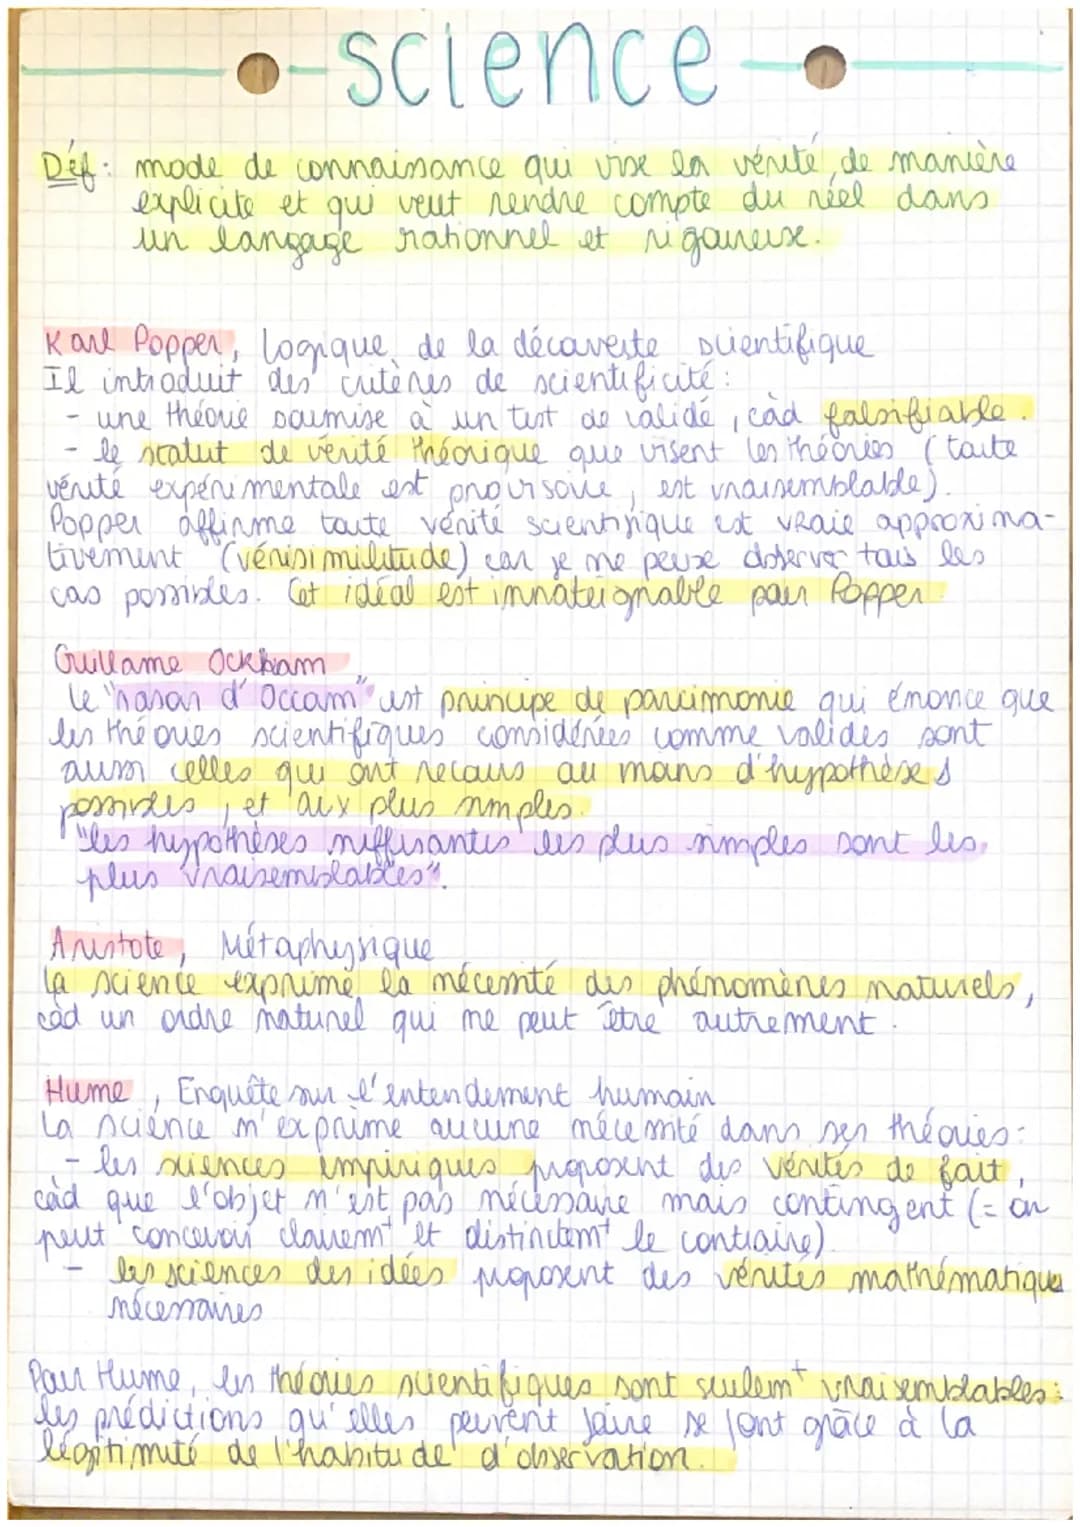 science
Déf : mode de connaissance qui vise la vérité, de manière
explicite et qui veut rendre compte du réel dans
un langage rationnel et rigoureuse.
Karl Popper, Logique de la découverte scientifique
Il introduit des critères de scientificité :
- une théorie soumise à un test de validé, càd falsifiable.
- le statut de vérité théorique que visent les théories (toute
vérité expérimentale est provisoire, est vraisemblable).
Popper affirme toute vérité scientifique est vraie approxima-
tivement (vérisimilitude) car je ne peux observer tous les
cas possibles. Cet idéal est innateignable pour Popper.
Guillame Ockham
Le "rasoir d'Occam" est principe de parcimonie qui énonce que
les théories scientifiques considérées comme valides sont
aussi celles qui ont recours au moins d'hypothèses
possibles, et aux plus simples.
"les hypothèses suffisantes les plus simples sont les
plus vraisemblables".
Aristote, Métaphysique
La science exprime la nécessité des phénomènes naturels,
càd un ordre naturel qui ne peut être autrement.
Hume, Enquête sur l'entendement humain
La science n'exprime aucune nécessité dans ses théories :
- les sciences empiriques proposent des vérités de fait,
càd que l'objet n'est pas nécessaire mais contingent (= on
peut concevoir clairemt et distinctemt le contraire)
- les sciences des idées proposent des vérités mathématiques
nécessaires
Pour Hume, les théories scientifiques sont seulemt vraisemblables :
les prédictions qu'elles peuvent faire se font grâce à la
légitimité de l'habitude d'observation.